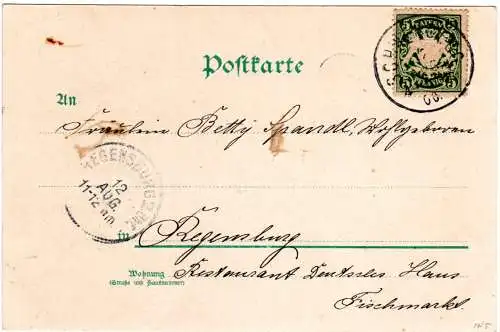 BAYERN
5 PFENNIG 5
00.
Postkarte
An
Fräulein Betty Spandl, Wohlgeboren
REGENSBURG
12
AUG.
11-12 Vm
in Regensburg
Wohnung
(Straße und Hausnummer)
Restaurant Deutsches Haus
Fischmarkt.